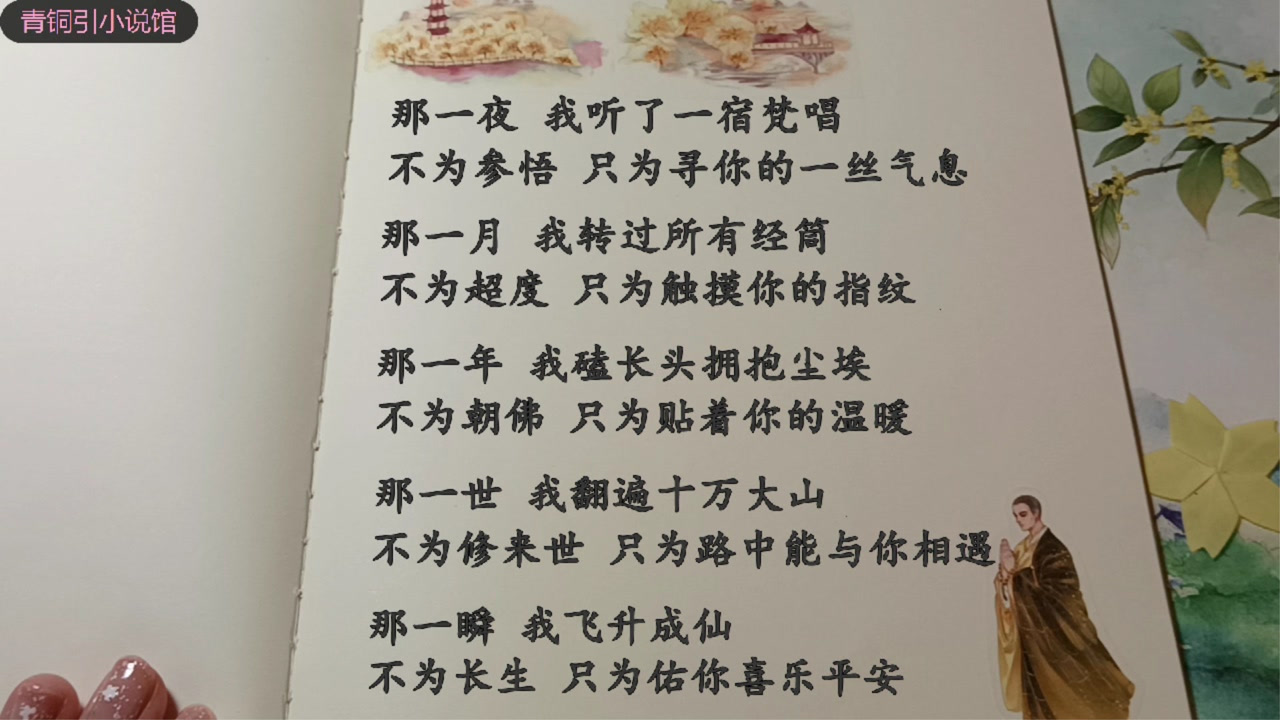 青铜引小说馆
那一夜 我听了一宿梵唱
不为参悟 只为寻你的一丝气息
那一月 我转过所有经筒
不为超度 只为触摸你的指纹
那一年 我磕长头拥抱尘埃
不为朝佛 只为贴着你的温暖
那一世 我翻遍十万大山
不为修来世 只为路中能与你相遇
那一瞬 我飞升成仙
不为长生 只为佑你喜乐平安